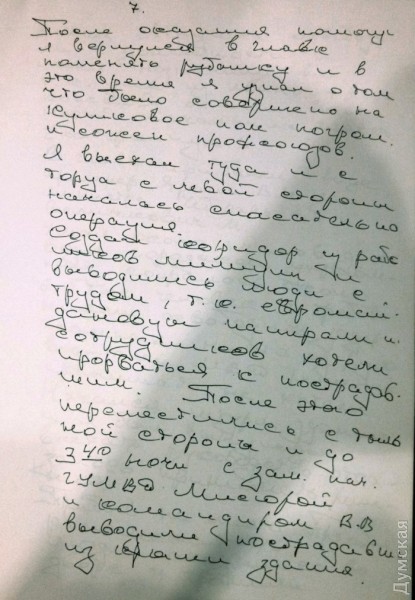 7.
После оказания помощи
я вернулся в главк
поменять рубашку и в
это время я узнал о том
что было совершено на
Куликовое поле погром
и сожжен профсоюзов.
Я выехал туда и с
торца с левой стороны
началась спасательно
операция.
Создан коридор из
милиции и
выводились люди с
трудом, т.к. евромай-
дановцы напирали и
сотрудников хотели
прорваться к пострадав-
шим. После этого
переместились с тыль
ной стороны и до
3 40 ночи с зам. нач.
ГУМВД
и командиром В.В
выводили пострадавших
из крыши здания.
Думская